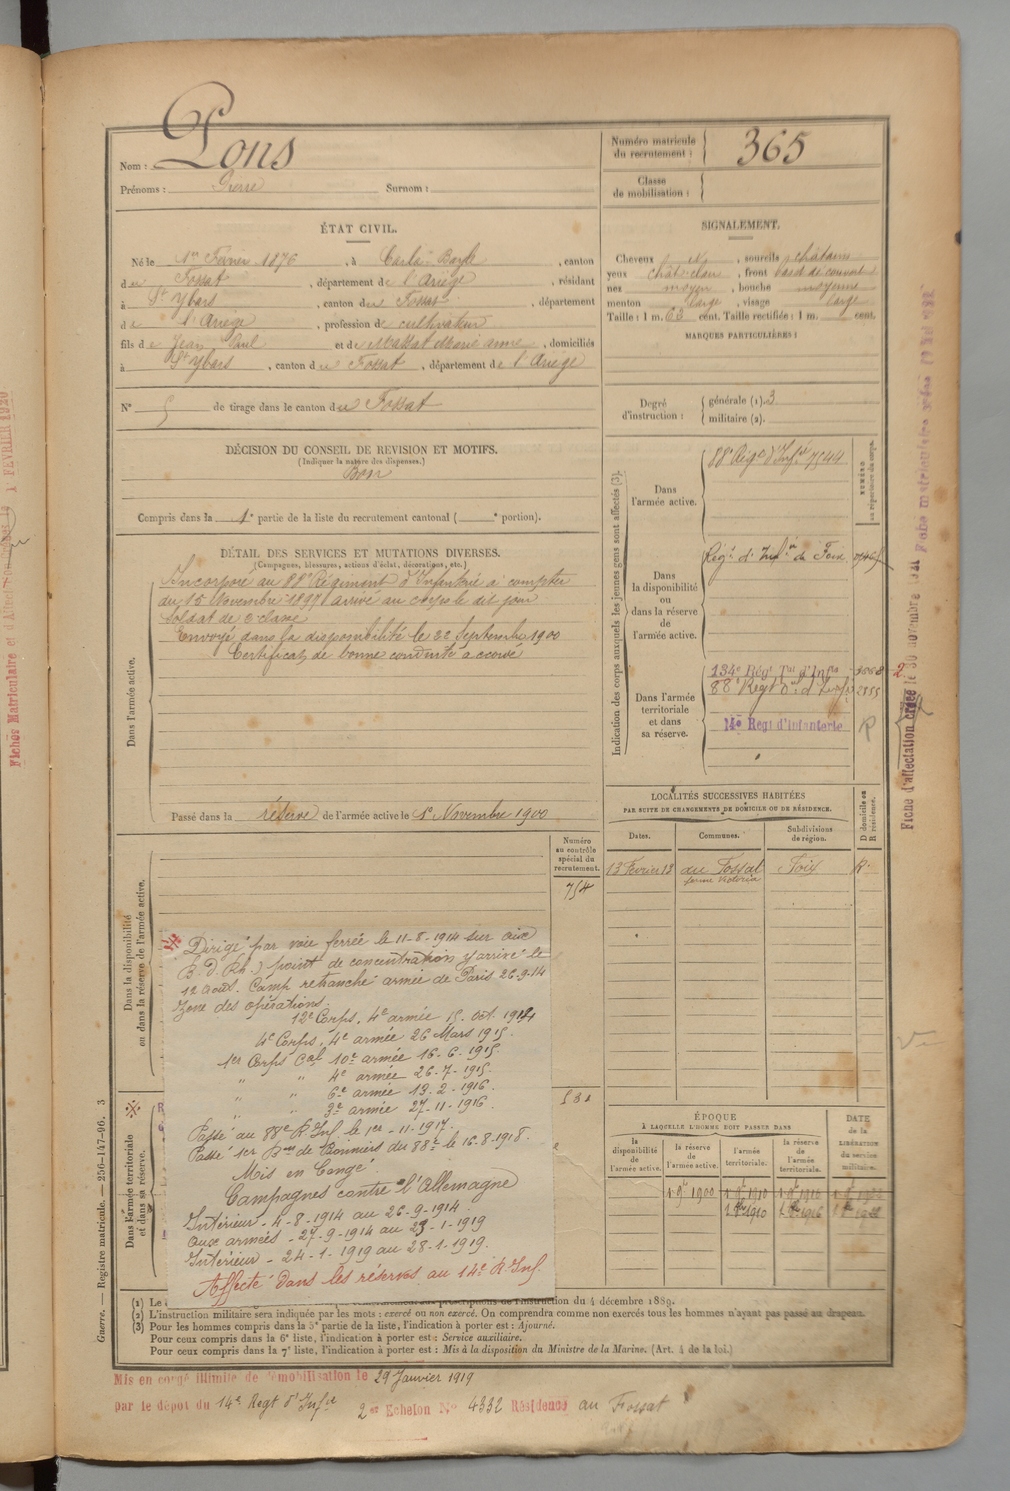 Nom : Pons
Prénoms : Pierre Surnom :
Numéro matricule du recrutement : 365
Classe de mobilisation :
ÉTAT CIVIL.
Né le 1er Février 1876, à Carla-Bayle, canton
du Fossat, département de l'Ariège, résidant
à St Ybars, canton du Fossat, département
de l'Ariège, profession de cultivateur
fils de Jean Paul et de Massat Marie Anne, domiciliés
à St Ybars, canton du Fossat, département de l'Ariège
N° 5 de tirage dans le canton du Fossat
SIGNALEMENT.
Cheveux N, sourcils châtains
yeux chât. clair, front
nez moyen, bouche moyenne
menton large, visage large
Taille : 1 m. 63 cent. Taille rectifiée : 1 m. cent.
MARQUES PARTICULIÈRES :
Degré d'instruction : générale (1). 3
militaire (2).
DÉCISION DU CONSEIL DE REVISION ET MOTIFS.
(Indiquer la nature des dispenses.)
Bon
Compris dans la 1e partie de la liste du recrutement cantonal ( e portion).
DÉTAIL DES SERVICES ET MUTATIONS DIVERSES.
(Campagnes, blessures, actions d'éclat, décorations, etc.)
Dans l'armée active.
Incorporé au 88e Régiment d'Infanterie à compter
du 15 Novembre 1897 arrivé au corps le dit jour
soldat de 2e classe
Envoyé dans la disponibilité le 22 Septembre 1900
Certificat de bonne conduite accordé
Passé dans la réserve de l'armée active le 1er Novembre 1900
Indication des corps auxquels les jeunes gens sont affectés (3).
NUMÉRO au répertoire du corps.
Dans l'armée active.
88e Régt d'Infie 7544
Dans la disponibilité ou dans la réserve de l'armée active.
Régt d'Infie de Foix
Dans l'armée territoriale et dans sa réserve.
134e Régt Tal d'Infie
88e Régt d'Infie 2855
14e Regt d'Infanterie R
LOCALITÉS SUCCESSIVES HABITÉES
PAR SUITE DE CHANGEMENTS DE DOMICILE OU DE RÉSIDENCE.
Dates. Communes. Subdivisions de région. D domicile ou R résidence.
13 Février 13 au Fossat Foix R.
ferme Victoria
Numéro au contrôle spécial du recrutement.
754
Dans la disponibilité ou dans la réserve de l'armée active.
Dirigé par voie ferrée le 11-8-1914 sur Aix
(B.d.Rh.) point de concentration y arrivé le
12 Août. Camp retranché armée de Paris 26-9-14
Zone des opérations.
12e Corps, 4e armée 15. Oct. 1914
4e Corps, 4e armée 26 Mars 1915.
1er Corps Cal 10e armée 16-6-1915.
" " 4e armée 26-7-1915.
" " 6e armée 13-2-1916.
" " 3e armée 27-11-1916.
Passé au 88e R. Inf. le 1er-11-1917.
Passé 1er Bon de Pionniers du 88e le 16-8-1918.
Mis en Congé.
Campagnes contre l'Allemagne
Intérieur - 4-8-1914 au 26-9-1914.
Aux armées - 27-9-1914 au 23-1-1919
Intérieur - 24-1-1919 au 28-1-1919.
Affecté dans les réserves au 14e R. Inf.
Dans l'armée territoriale et dans sa réserve.
ÉPOQUE
À LAQUELLE L'HOMME DOIT PASSER DANS
la disponibilité de l'armée active. la réserve de l'armée active. l'armée territoriale. la réserve de l'armée territoriale.
DATE de la LIBÉRATION du service militaire.
1 9bre 1900 1 9bre 1910 1 9bre 1916 1 9bre 1922
(1) Le
de l'instruction du 4 décembre 1889.
(2) L'instruction militaire sera indiquée par les mots : exercé ou non exercé. On comprendra comme non exercés tous les hommes n'ayant pas passé au drapeau.
(3) Pour les hommes compris dans la 5e partie de la liste, l'indication à porter est : Ajourné.
Pour ceux compris dans la 6e liste, l'indication à porter est : Service auxiliaire.
Pour ceux compris dans la 7e liste, l'indication à porter est : Mis à la disposition du Ministre de la Marine. (Art. 4 de la loi.)
Guerre. — Registre matricule. — 256-147-96. 3
Mis en congé illimité de démobilisation le 29 Janvier 1919
par le dépôt du 14e Regt d'Infie 2e Echelon N° 4332 Résidence au Fossat